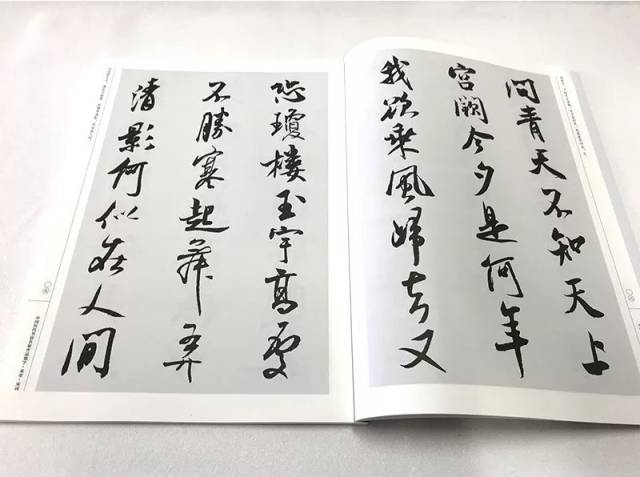 問青天不知天上
宮闕今夕是何年
我欲乘風歸去又
恐瓊樓玉宇高處
不勝寒起舞弄
清影何似在人間